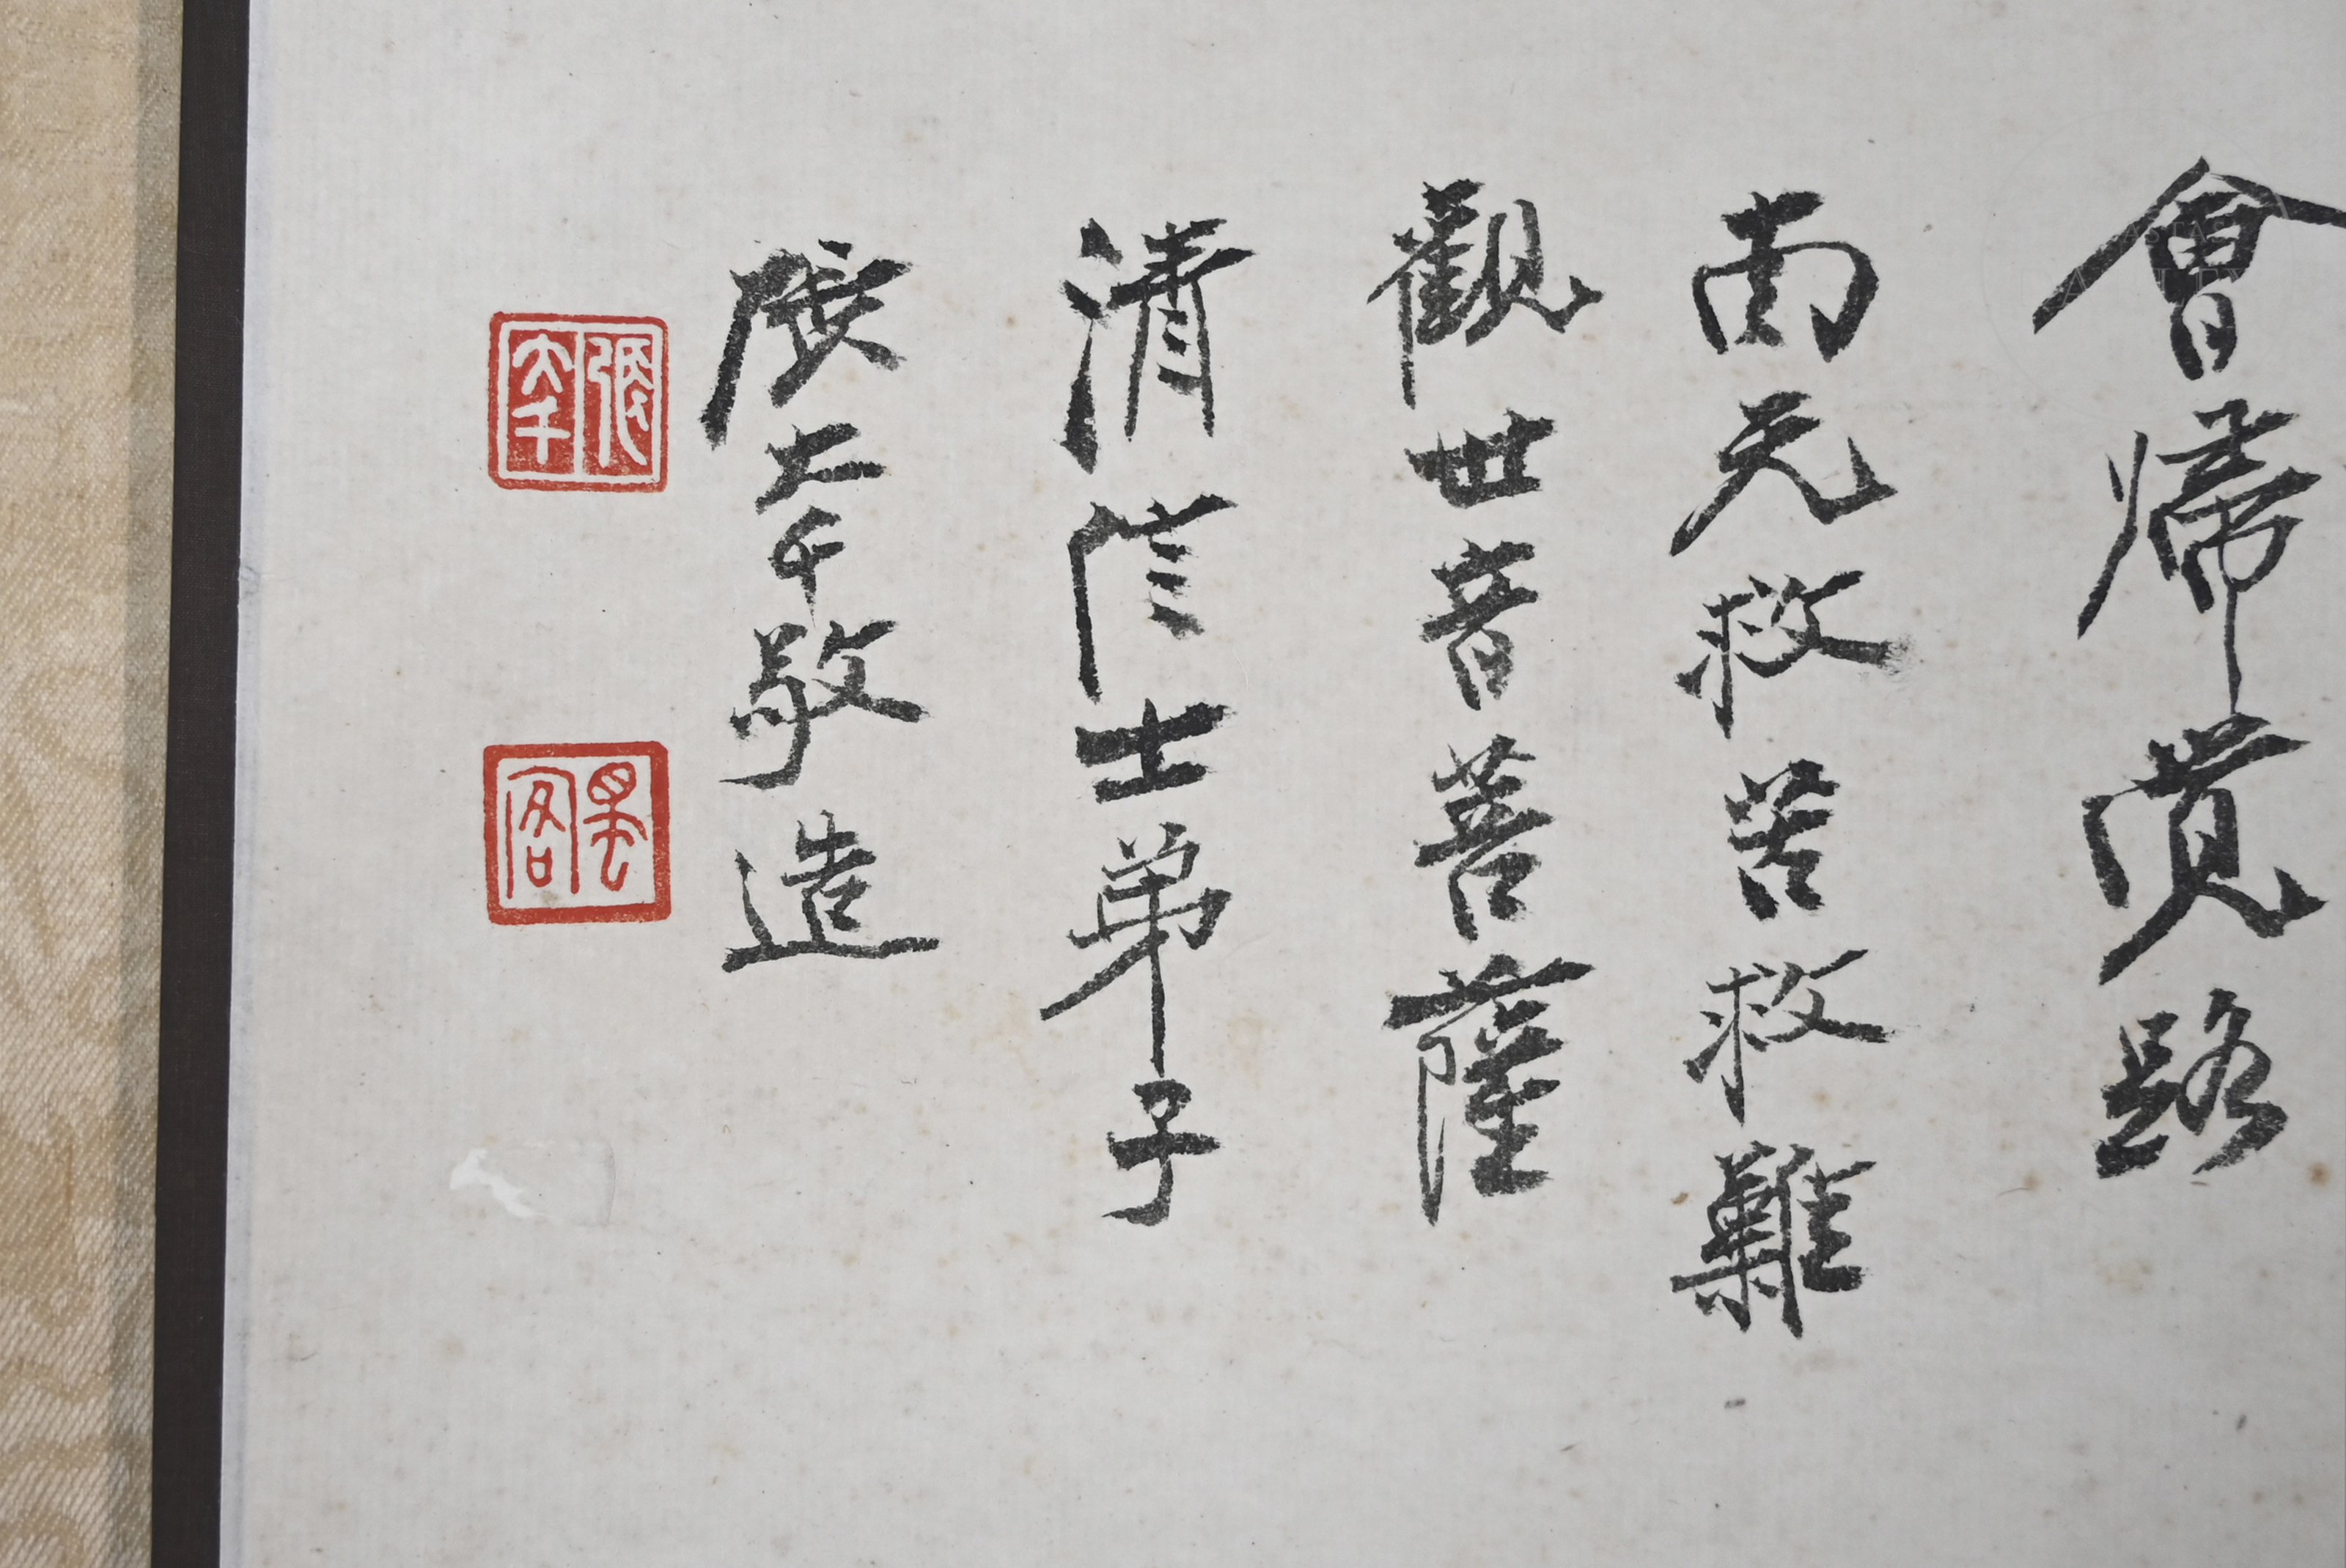 會帰覚路
南无救苦救難
觀世音菩薩
清信士弟子
張大千敬造
張大千
昙客